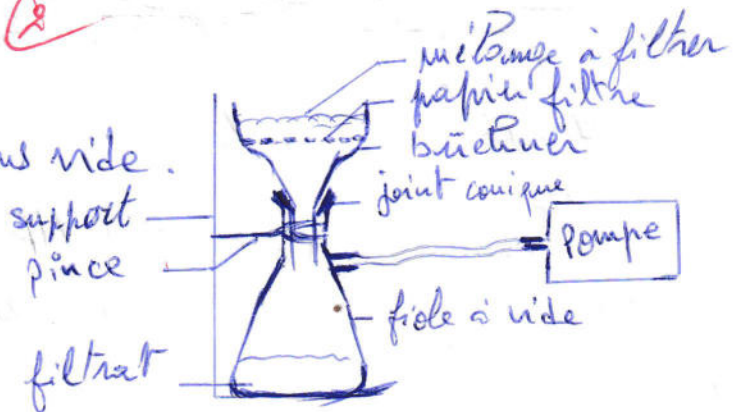 2
mélange à filtrer
papier filtre
büchner
joint conique
us vide.
support
pince
Pompe
fiole à vide
filtrat